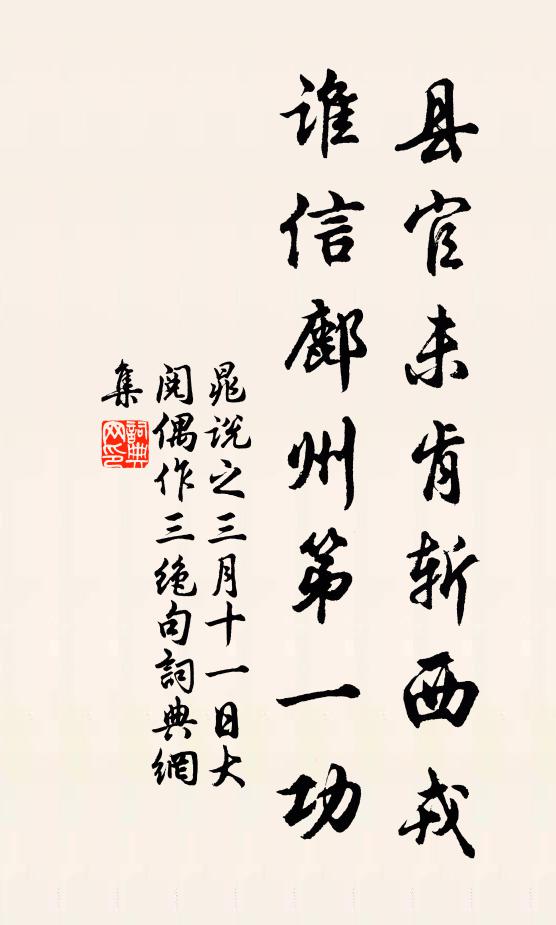 县官未肯斩西戎
谁信鄜州第一功
晁说之三月十一日大
阅偶作三绝句詞典網
集
詞典
网印